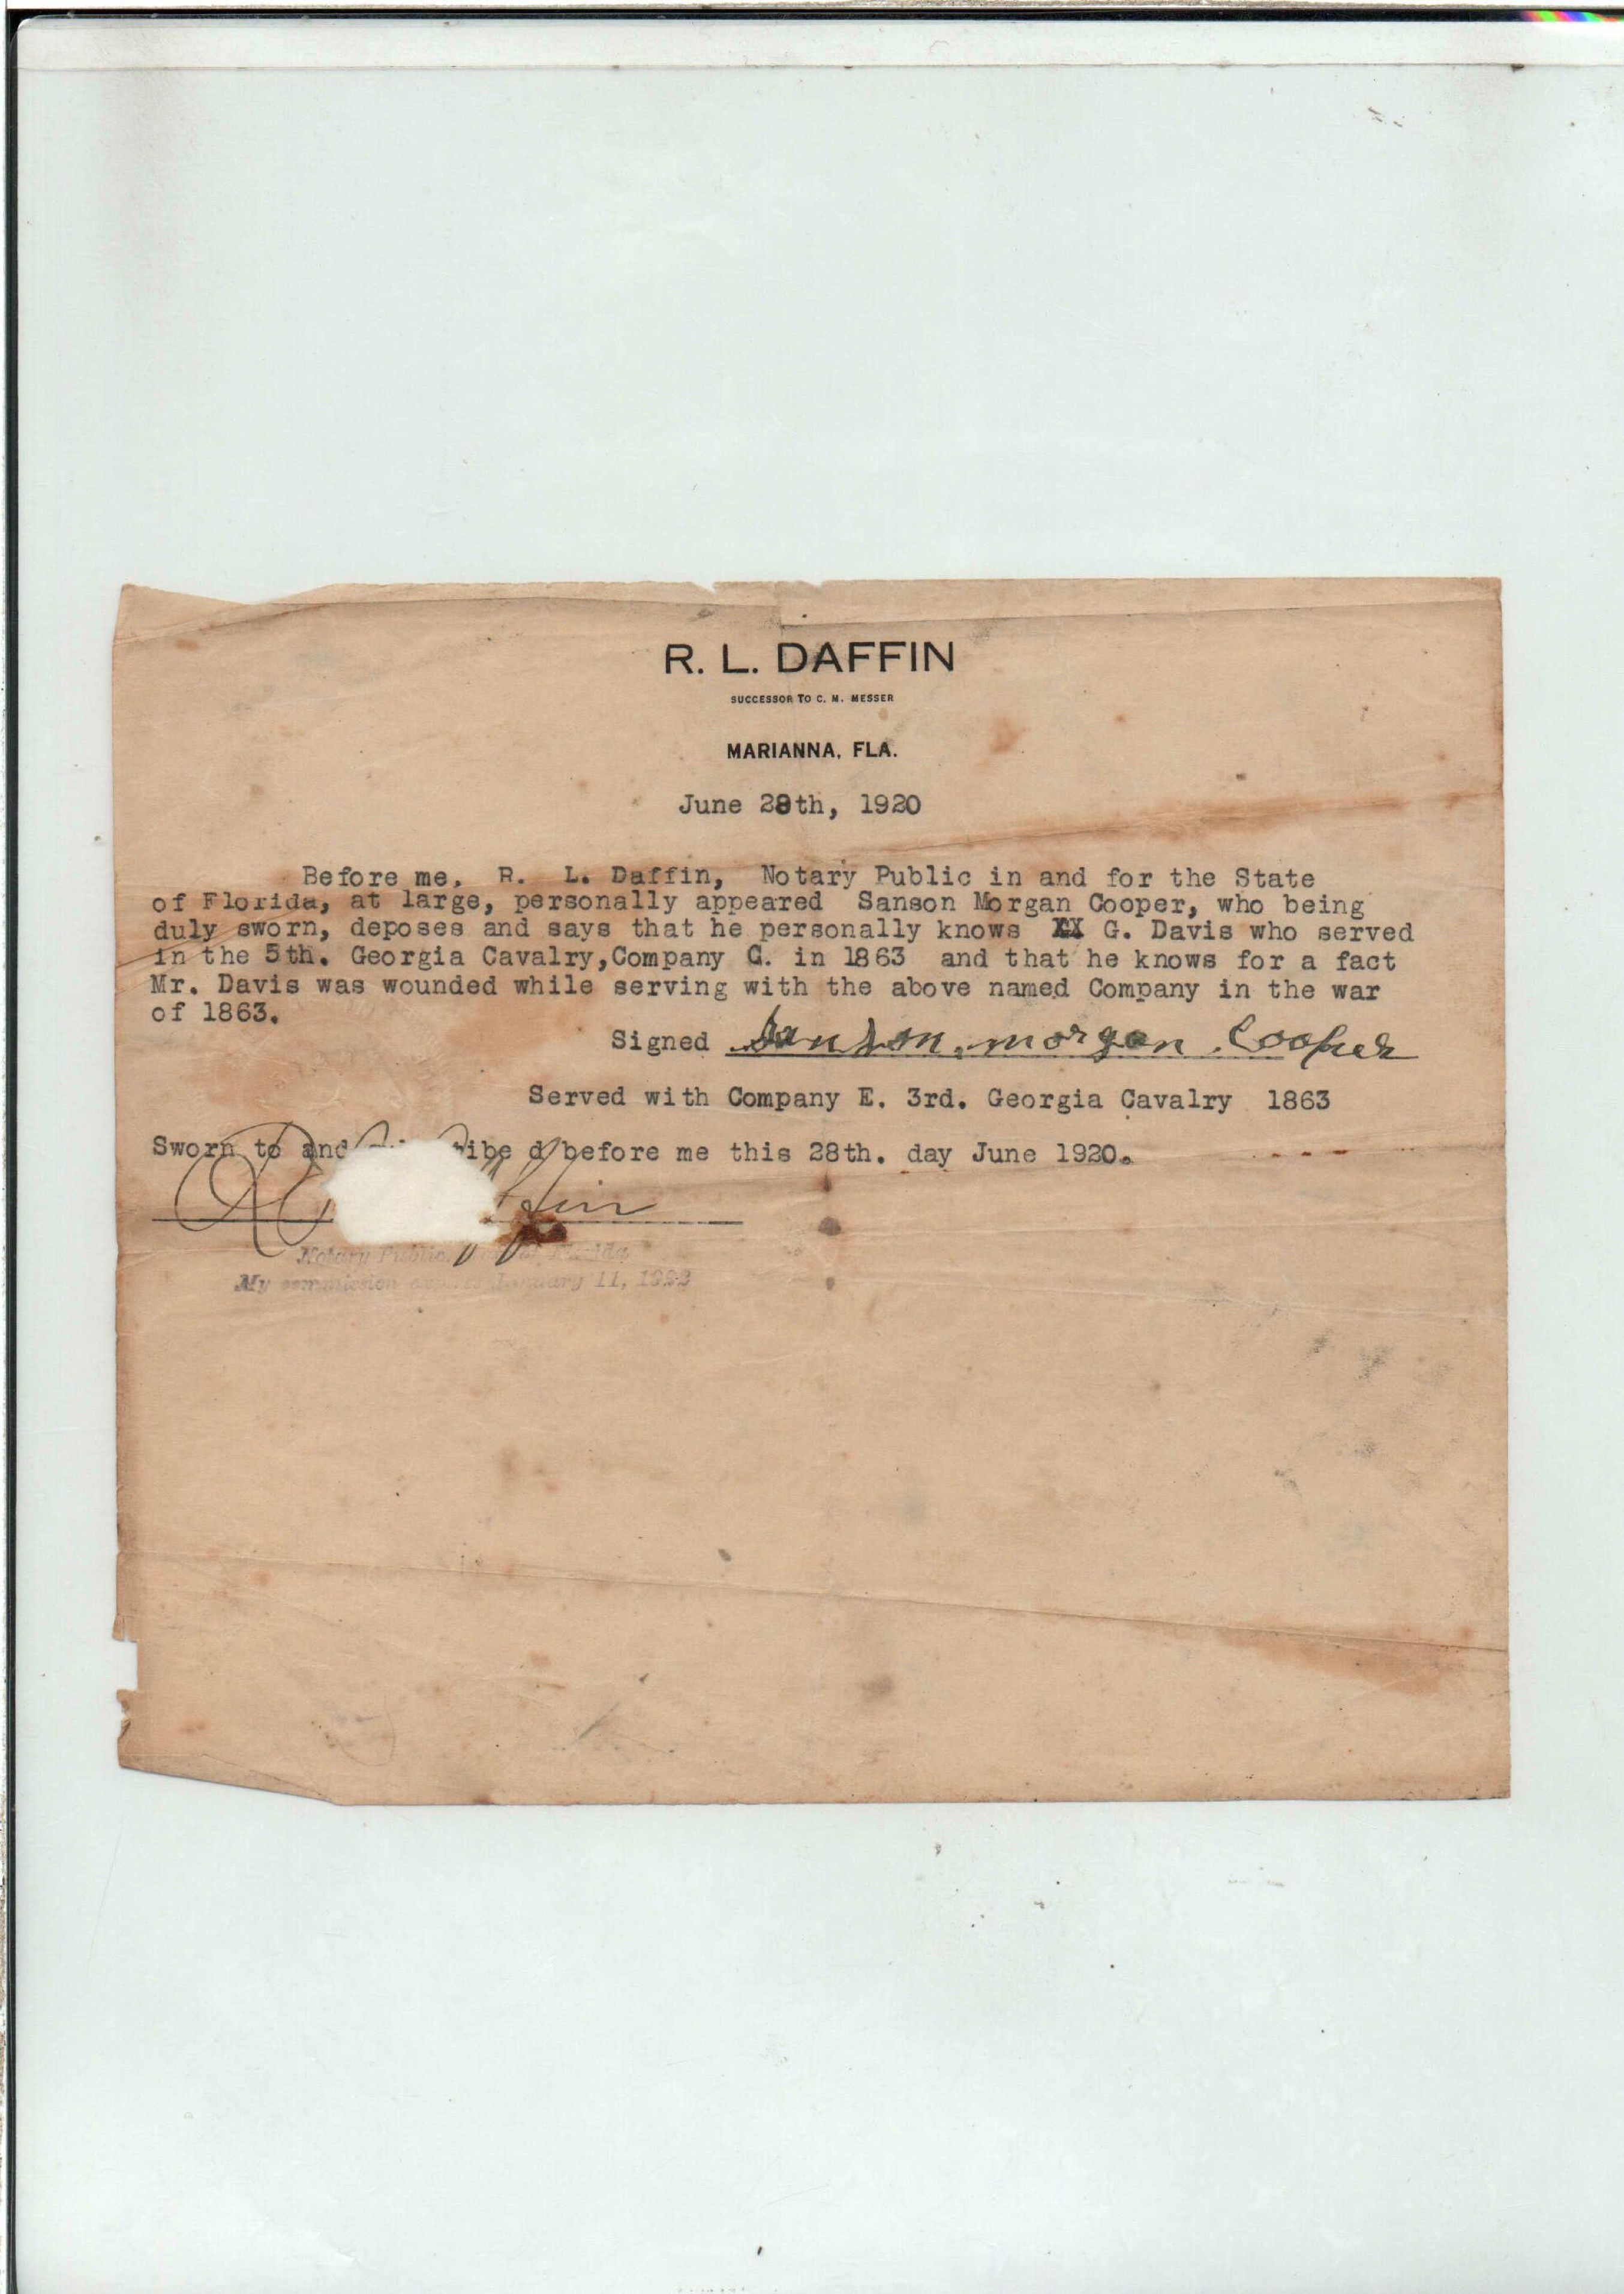 R. L. DAFFIN
SUCCESSOR TO C. M. MESSER
MARIANNA, FLA.
June 28th, 1920
Before me, R. L. Daffin, Notary Public in and for the State
of Florida, at large, personally appeared Sanson Morgan Cooper, who being
duly sworn, deposes and says that he personally knows XX G. Davis who served
in the 5th. Georgia Cavalry,Company C. in 1863 and that he knows for a fact
Mr. Davis was wounded while serving with the above named Company in the war
of 1863.
Signed Sanson. morgan Cooper
Served with Company E. 3rd. Georgia Cavalry 1863
Sworn to and ibe d before me this 28th. day June 1920.
Notary Public, Florida
My commission January 11, 1922